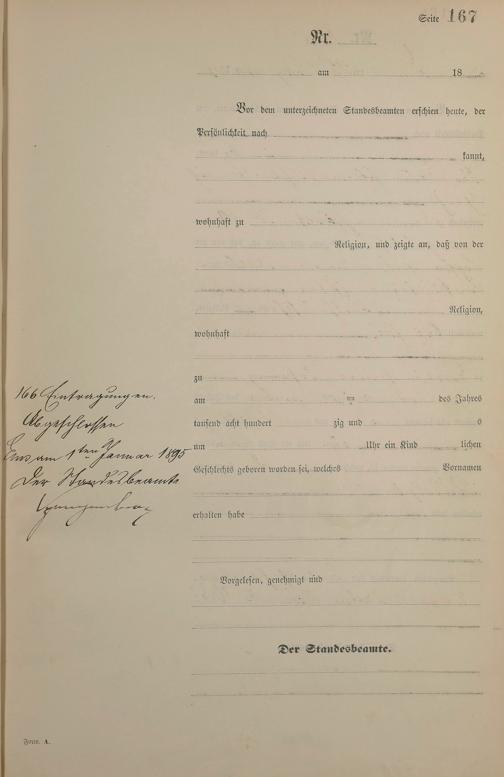 Seite 167
Nr.
am 18
Vor dem unterzeichneten Standesbeamten erschien heute, der
Persönlichkeit nach
kannt,
wohnhaft zu
Religion, und zeigte an, daß von der
Religion,
wohnhaft
zu
am des Jahres
tausend acht hundert zig und
um Uhr ein Kind lichen
Geschlechts geboren worden sei, welches Vornamen
erhalten habe
Vorgelesen, genehmigt und
Der Standesbeamte.
166 Eintragungen.
Abgeschlossen
am 1ten Januar 1895
Der Standesbeamte
Form. A.